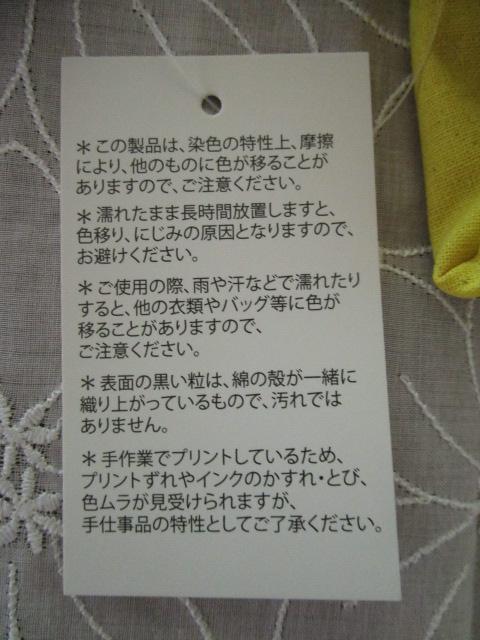 ＊この製品は、染色の特性上、摩擦
により、他のものに色が移ることが
ありますので、ご注意ください。
＊濡れたまま長時間放置しますと、
色移り、にじみの原因となりますので、
お避けください。
＊ご使用の際、雨や汗などで濡れたり
すると、他の衣類やバッグ等に色が
移ることがありますので、
ご注意ください。
＊表面の黒い粒は、綿の殻が一緒に
織り上がっているもので、汚れでは
ありません。
＊手作業でプリントしているため、
プリントずれやインクのかすれ・とび、
色ムラが見受けられますが、
手仕事品の特性としてご了承ください。